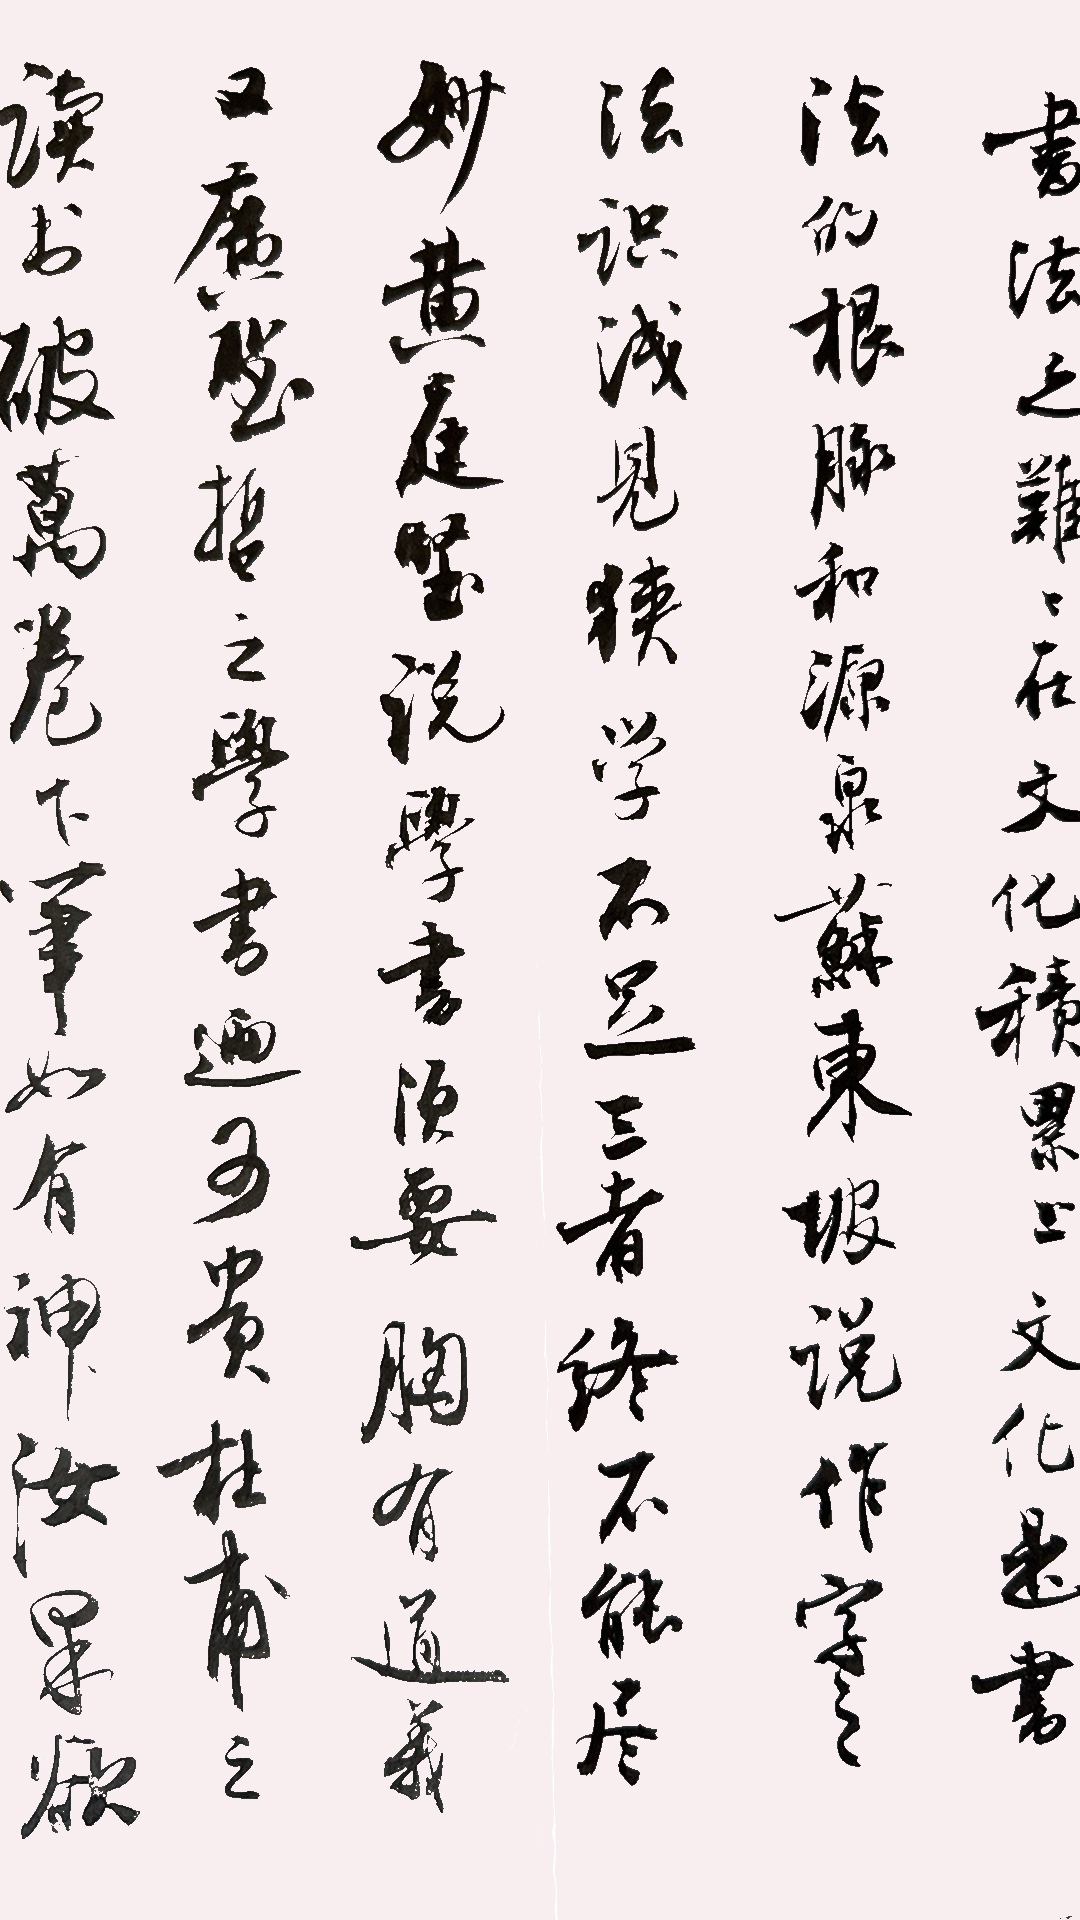 書法之難難在文化積累上文化是書
法的根脉和源泉蘇東坡说作字之
法识浅見狭学不足三者终不能尽
妙黄庭堅说學書须要胸有道義
又廣聖哲之學書廼可貴杜甫之
读书破萬卷下筆如有神汝果欲